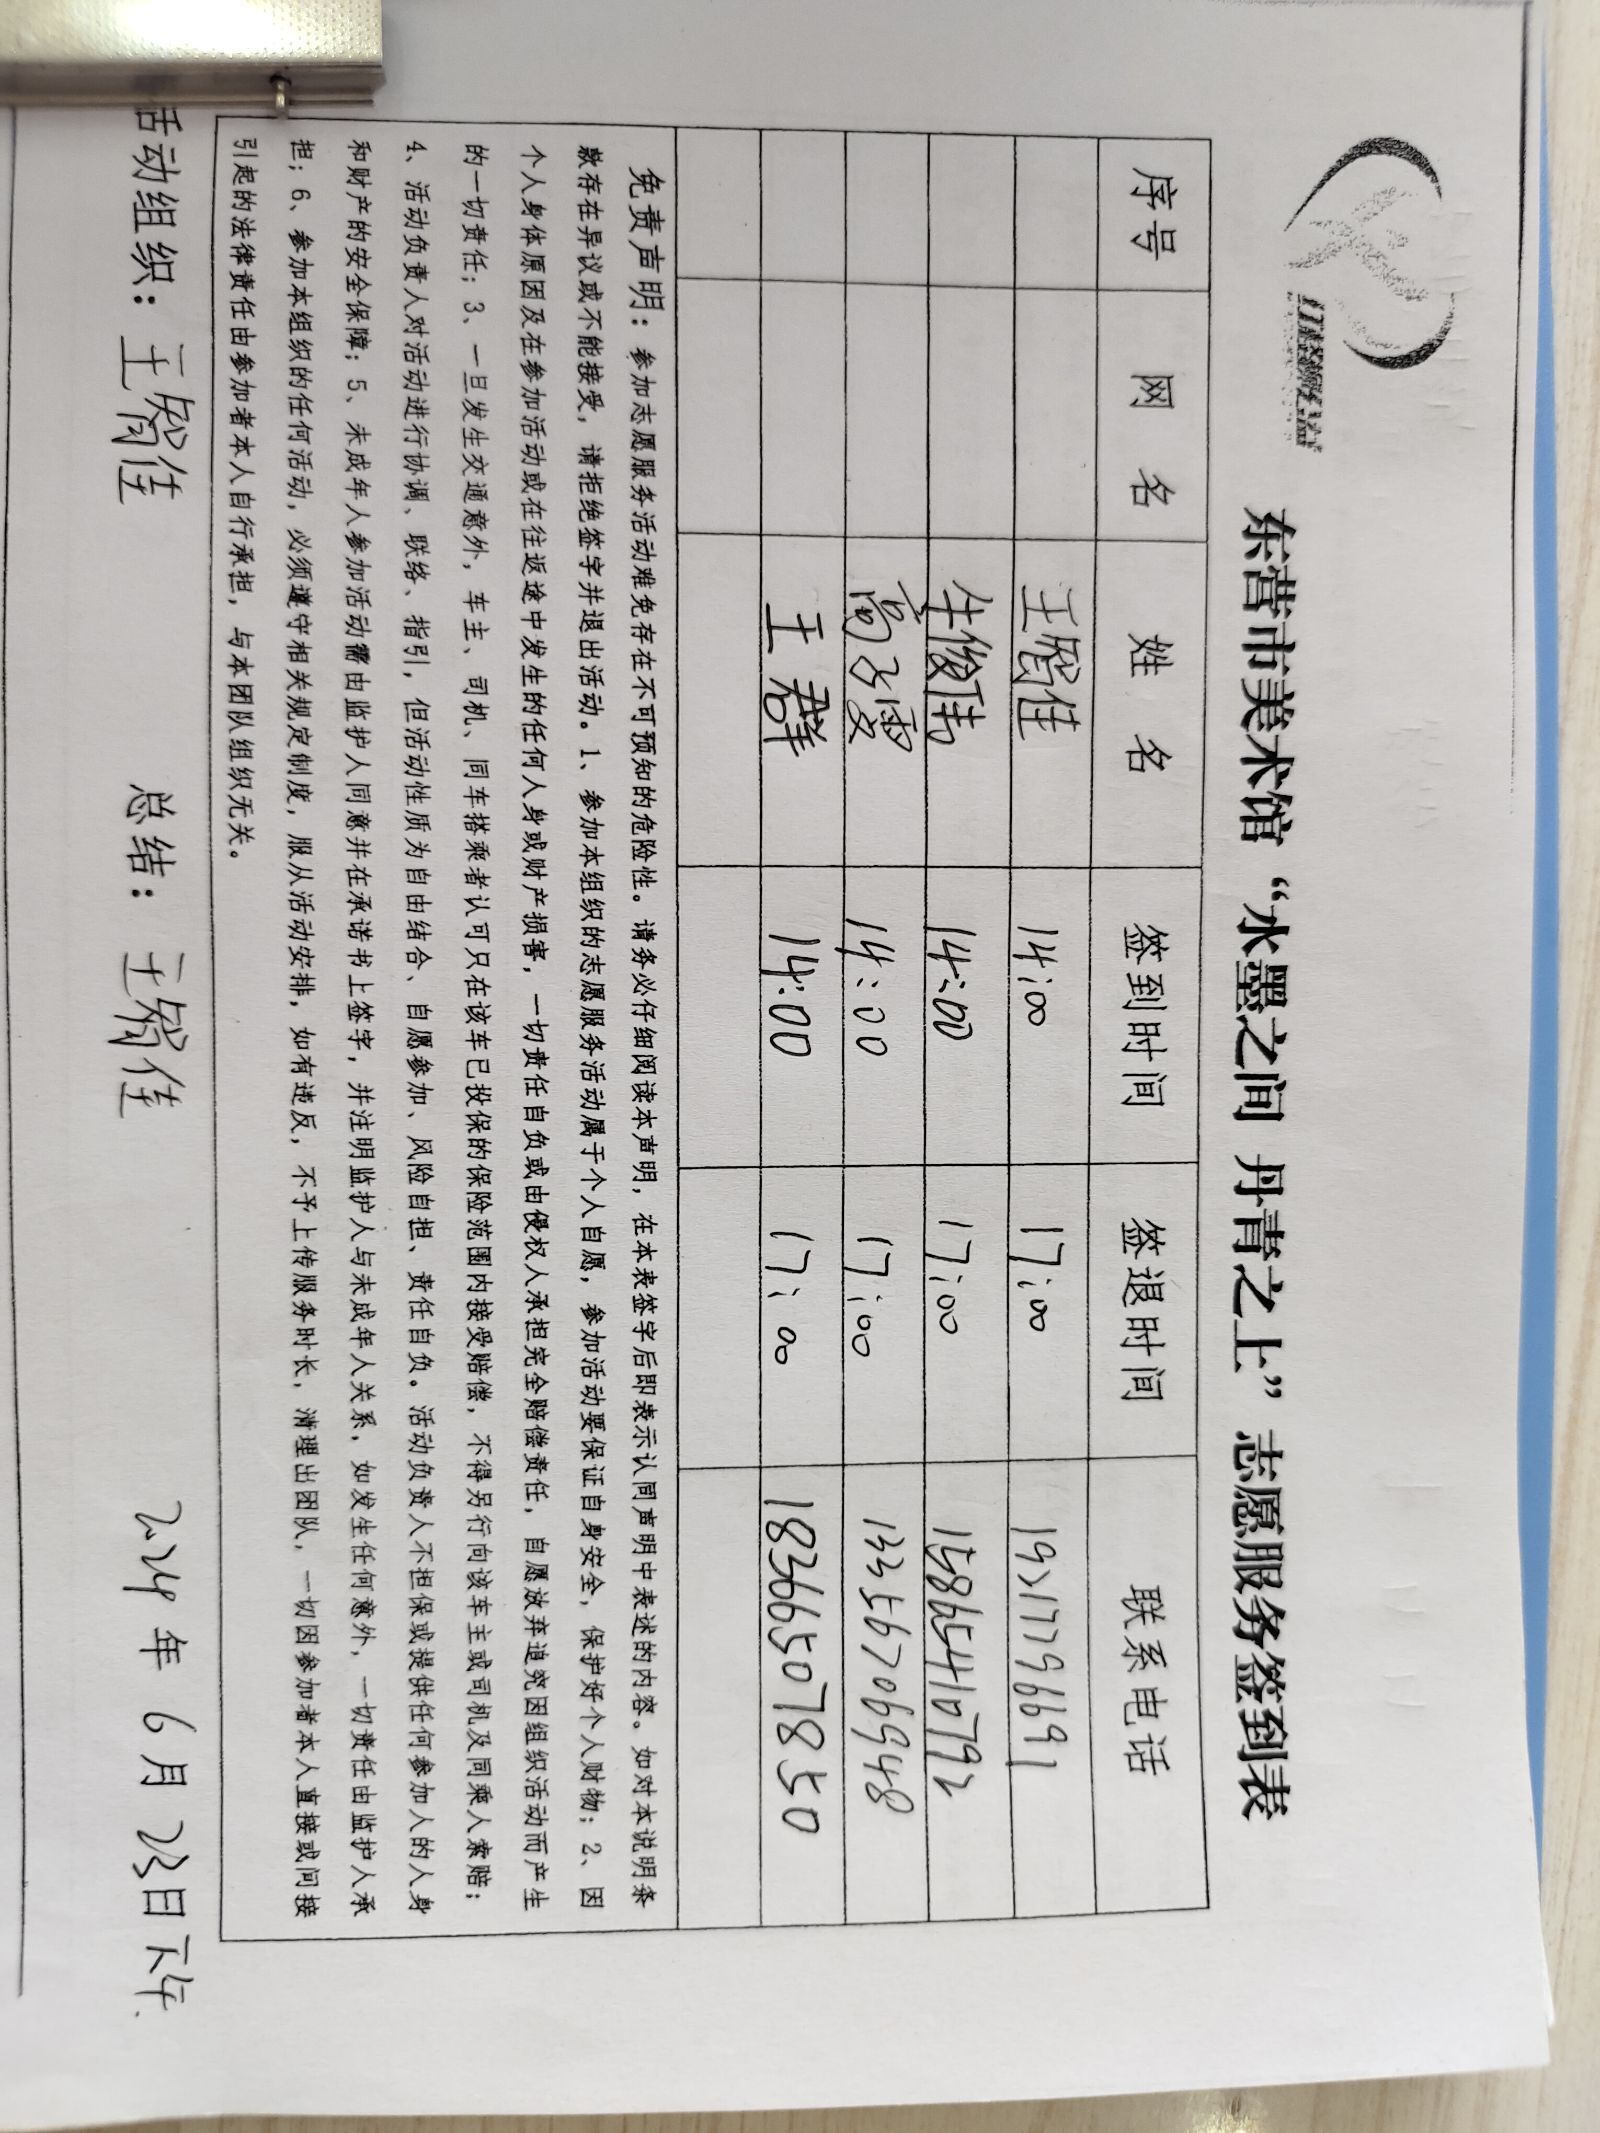 东营市美术馆“水墨之间 丹青之上”志愿服务签到表
序号 网 名 姓 名 签到时间 签退时间 联系电话
王智佳 14:00 17:00
牛俊伟 14:00 17:00 15865410792
高子雯 14:00 17:00 13356706948
王群 14:00 17:00 18366507850
免责声明：参加志愿服务活动难免存在不可预知的危险性。请务必仔细阅读本声明，在本表签字后即表示认同声明中表述的内容。如对本说明条
款存在异议或不能接受，请拒绝签字并退出活动。1、参加本组织的志愿服务活动属于个人自愿，参加活动要保证自身安全，保护好个人财物；2、因
个人身体原因及在参加活动或在往返途中发生的任何人身或财产损害，一切责任自负或由侵权人承担完全赔偿责任，自愿放弃追究因组织活动而产生
的一切责任；3、一旦发生交通意外，车主、司机、同车搭乘者认可只在该车已投保的保险范围内接受赔偿，不得另行向该车主或司机及同乘人索赔；
4、活动负责人对活动进行协调、联络、指引，但活动性质为自由结合、自愿参加、风险自担、责任自负。活动负责人不担保或提供任何参加人的人身
和财产的安全保障；5、未成年人参加活动需由监护人同意并在承诺书上签字，并注明监护人与未成年人关系，如发生任何意外，一切责任由监护人承
担；6、参加本组织的任何活动，必须遵守相关规定制度，服从活动安排，如有违反，不予上传服务时长，清理出团队，一切因参加者本人直接或间接
引起的法律责任由参加者本人自行承担，与本团队组织无关。
活动组织：王智佳 总结：王智佳 2024年6月23日下午